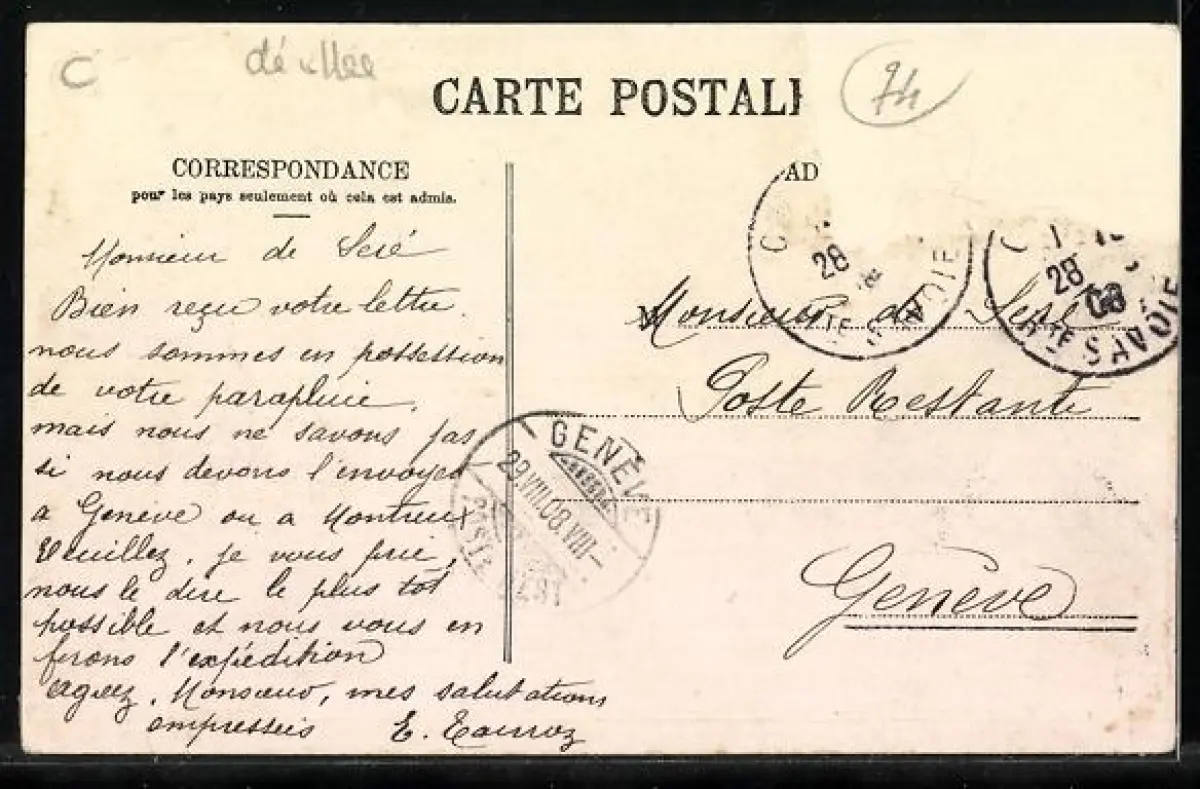 C
74
CARTE POSTALE
AD
CORRESPONDANCE
pour les pays seulement où cela est admis.
Monsieur de Sesé
Bien reçu votre lettre
nous sommes en possession
de votre parapluie,
mais nous ne savons pas
si nous devons l'envoyer
a Genève ou a Montreux
Veuillez, je vous prie,
nous le dire le plus tôt
possible et nous vous en
ferons l'expédition
Agréez, Monsieur, mes salutations
empressés
E.
28
Hte SAVOIE
28
08
Hte SAVOIE
Monsieur de Sesé
Poste Restante
Genève
GENÈVE
29.VIII.08.VIII-